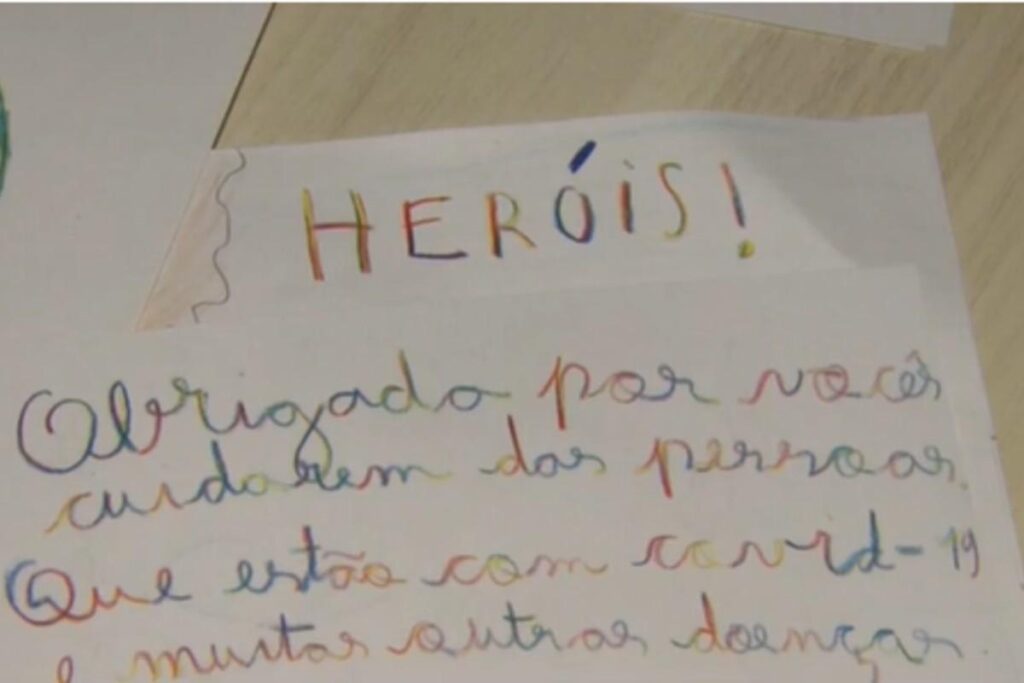 HERÓIS!
Obrigado por vocês
cuidarem das pessoas.
Que estão com covid-19
e muitas outras doenças.